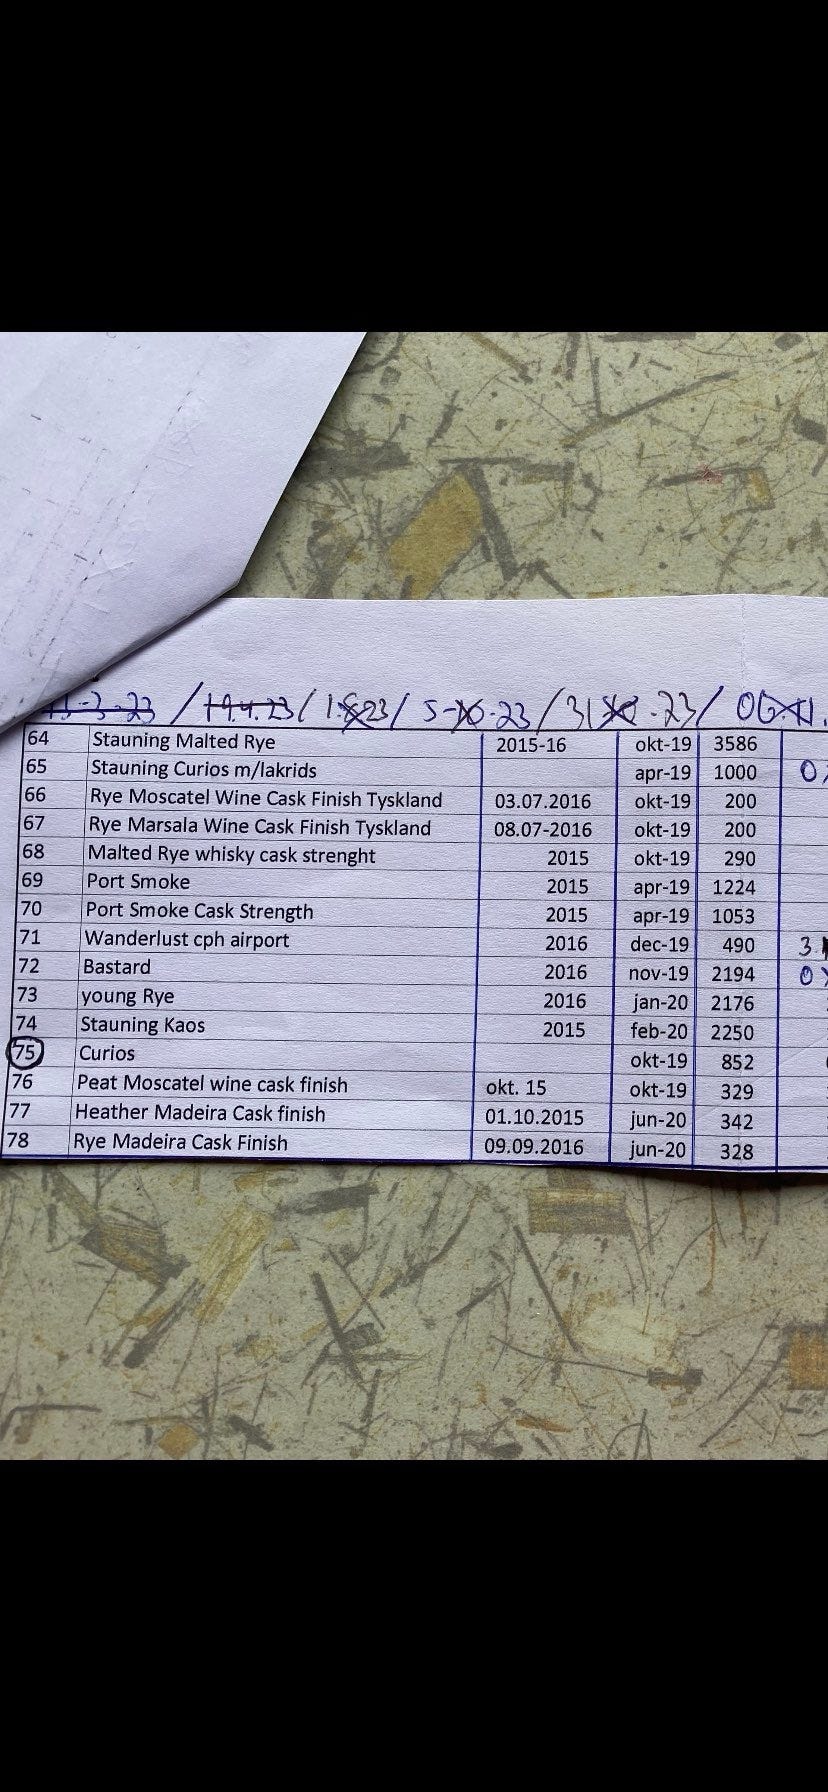 13-3-23 / 19.4.23 / 1.8.23 / 5-10-23 / 31 10 -23 / 06.11.
64 Stauning Malted Rye 2015-16 okt-19 3586
65 Stauning Curios m/lakrids apr-19 1000
66 Rye Moscatel Wine Cask Finish Tyskland 03.07.2016 okt-19 200
67 Rye Marsala Wine Cask Finish Tyskland 08.07-2016 okt-19 200
68 Malted Rye whisky cask strenght 2015 okt-19 290
69 Port Smoke 2015 apr-19 1224
70 Port Smoke Cask Strength 2015 apr-19 1053
71 Wanderlust cph airport 2016 dec-19 490 3.
72 Bastard 2016 nov-19 2194
73 young Rye 2016 jan-20 2176
74 Stauning Kaos 2015 feb-20 2250
75 Curios okt-19 852
76 Peat Moscatel wine cask finish okt. 15 okt-19 329
77 Heather Madeira Cask finish 01.10.2015 jun-20 342
78 Rye Madeira Cask Finish 09.09.2016 jun-20 328